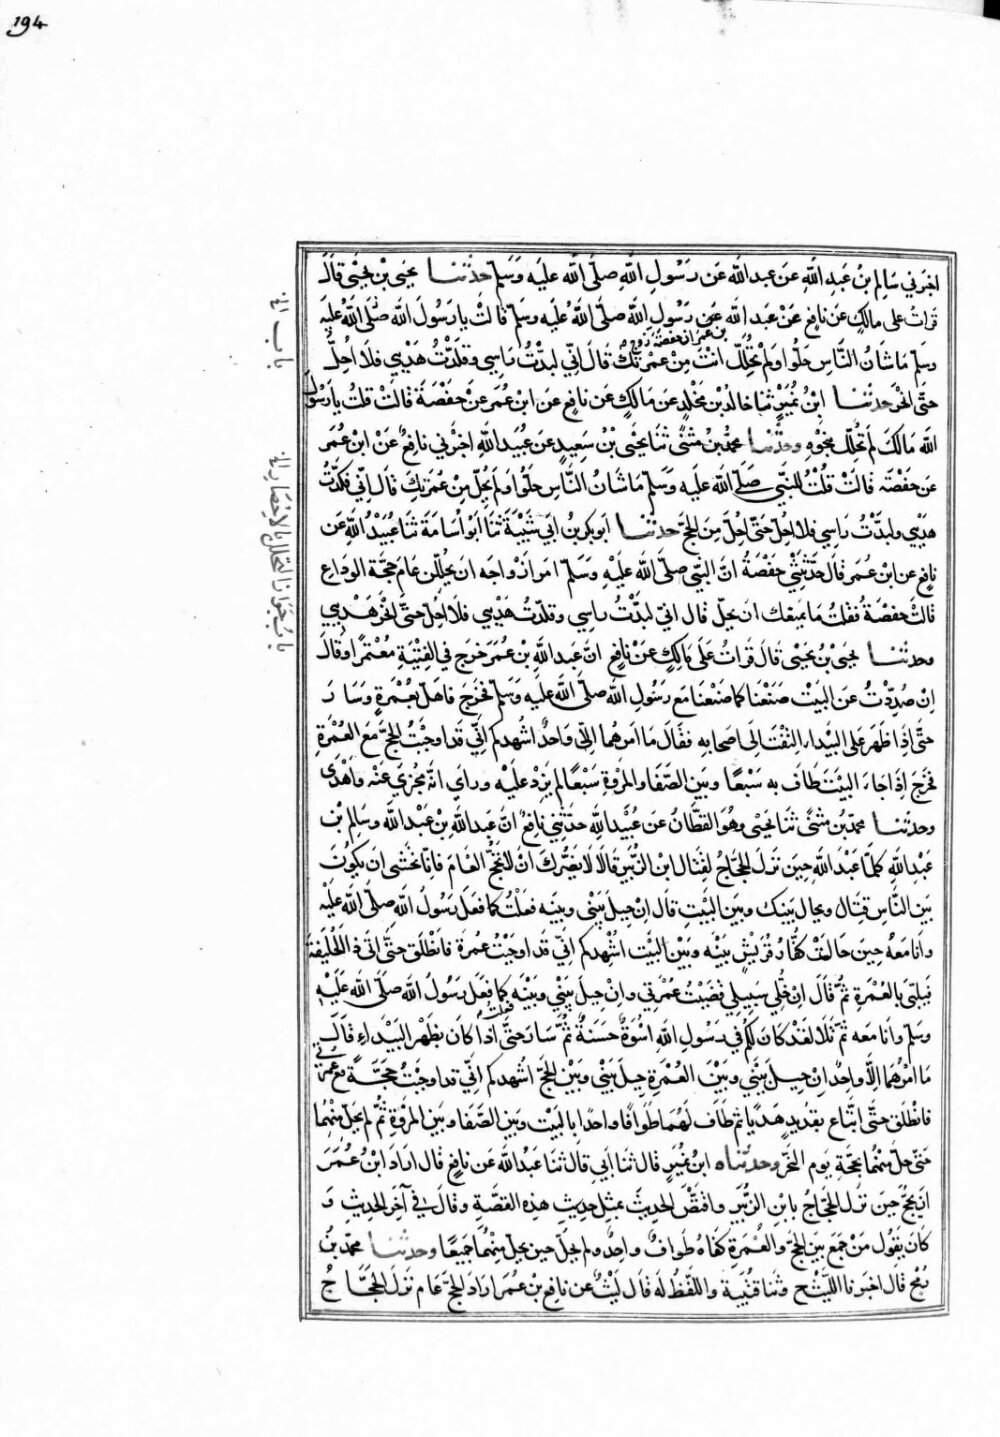 194
اخبرني سَالِم بنُ عَبدِ اللهِ عَن عبد اللهِ عَن رَسُولِ اللهِ صلى الله عليه وَسَلم حدثنا يحيى بن يحيى قالَ
قرات على مالكٍ عن نافعٍ عَنْ عَبد الله بن عمران حفصة زوج رَسُولِ الله صلى اللهُ عليه وسلم قالتْ يا رَسُولَ الله صلى الله عليه
وسلم مَا شَانُ النَّاسِ حلوا ولم تحلل انتَ مِنْ عمرتكَ قالَ اني لبدتُ رَاسِي وقلدتُ هَديي فلا احِلُّ
حتى انحرَ حدثنا ابنُ نُميرٍ ثنا خالد بن مَخْلدٍ عن مَالكٍ عن نافعٍ عن ابن عُمرَ عن حَفْصَةَ قالت قلتُ يا رَسُولَ
الله مَالكَ لم تحلل بنحوه وحدثنا محمد بن مثنى ثنا يحيى بنُ سَعِيدٍ عن عُبيد الله اخبرني نافعٌ عَنْ ابن عُمَر
عن حفصَة قالتْ قلتُ للنبي صَلى الله عليه وَسلم مَا شانُ النَّاسِ حلوا ولم تحل مِنْ عمرَتِكَ قالَ اِني قلدتُ
هديي ولبدتُ رَاسِي فلا احِل حَتى احِلَّ مِنَ الحج حدثنا ابو بكر بن ابي شَيْبَةَ ثنا ابُو اُسَامَةَ ثنا عُبَيْدُ الله عَن
نافع عن ابن عمَر قالَ حدثتني حفصَةُ انَّ النبي صلى الله عليه وسَلم امر ازواجه ان يحللن عَام حجَّة الودَاع
قالتْ حفصَةُ فقلتُ ما يمنعك ان تحلَّ قال اني لبدتُ راسي وقلدتُ هديي فلا احِلّ حتى انحرَ هَدْيي
وحدثنا يحيى بن يحيى قال قراتُ عَلَى مَالِكٍ عن نَافعٍ انَّ عبد اللهِ بن عُمَر خرَج في الفتنةِ معتمرًا وقالَ
اِنْ صُدِدْتُ عن البيت صنَعْنا كما صَنَعْنا مع رَسُولِ اللهِ صلى الله عليه وسلم فخرجَ فاهلَّ بعُمْرَةٍ وسَارَ
حتى اِذا ظهَر على البيداءِ التفتَ الى اصحابهِ فقال مَا امرهُما الا واحدٌ اشهدكم اَني قد اوجبتُ الحجَّ مَعَ العُمرةِ
فخرجَ اِذا جاءَ البيتَ طافَ به سَبْعًا وبين الصَّفا والمروةِ سَبْعًا لم يزدْ عليه وراي انه مجزي عنه واهْدَى
وحدثنا محمد بن مثنى ثنا يحيى وهُوَ القطَّانُ عن عُبيدِ الله حدثني نافعٌ انَّ عبد الله بن عَبْد الله وسَالِم بن
عَبد اللهِ كلما عَبْدَ اللهِ حِينَ نزلَ الحجاجُ لقتَالِ ابن الزُّبير قالا لا يَضُرُّكَ انْ لا تحجَّ العَامَ فانا نخشى ان يكونَ
بين النَّاسِ قتال ويحال بَينكَ وبين البيتِ قال ان حيلَ بيني وبينه فعلتُ كما فعَل رَسُولُ اللهِ صلى الله عليه
وانا مَعَهُ حينَ حالتْ كفَّارُ قريشٍ بينه وبينَ البيت اشهدكم اني قد اوجبتُ عمرةَ فانطلق حتى اتى ذا الحليفةِ
فلبى بالعُمْرةِ ثمَّ قال ان خُلي سبيلي قضيتُ عمرَتي وان حيلَ بيني وبينه فعلت كما فعَل رَسُولُ الله صَلى الله عليه
وسلم وانا معه ثمَّ تلا لقد كانَ لكم في رَسُولِ اللهِ اُسْوَةٌ حَسَنَةٌ ثمَّ سَارَ حتى اذا كانَ بظهرِ البَيْداءِ قالَ
مَا امرُهُما اِلّا واحِدٌ ان حِيلَ بيني وبينَ العُمْرةِ حيلَ بيني وبين الحجِّ اشهدكم اِني قد اوجبتُ حجَّةً مع عمرتي
فانطلقَ حتى ابتاع بقديدٍ هَديًا ثم طافَ لهُمَا طوَافًا واحدًا بالبيت وبين الصَّفا وبين المروةِ ثم لم يحلَّ منهما
حتى حلَّ منهُمَا بحجَّةٍ يوم النحر وحدثناه ابن نميرٍ قال ثنا ابي قال ثنا عبيدُ الله عَن نافعٍ قال ارادَ ابنُ عُمَرَ
ان يحجَّ حين نزلَ الحجاجُ بابن الزُّبير واقتصَّ الحديثَ بمثلِ حديثِ هذه القصَّةِ وقالَ في آخرِ الحديثِ وَ
كان يَقُول مَن جمعَ بين الحجِّ والعُمرةِ كفاهُ طوافٌ واحِدٌ ولم يحلَّ حين يحلّ منهُما جميعًا وحدثنا محمد بن
رُمْحٍ قال اخبرنا الليثُ ح وثنا قتيبةُ واللفظُ له قالَ ليثٌ عن نافع بن عُمَر ارَادَ الحجَّ عَام نزلَ الحجَّاجُ
باب
باب جوَاز التحلل بالاحصار